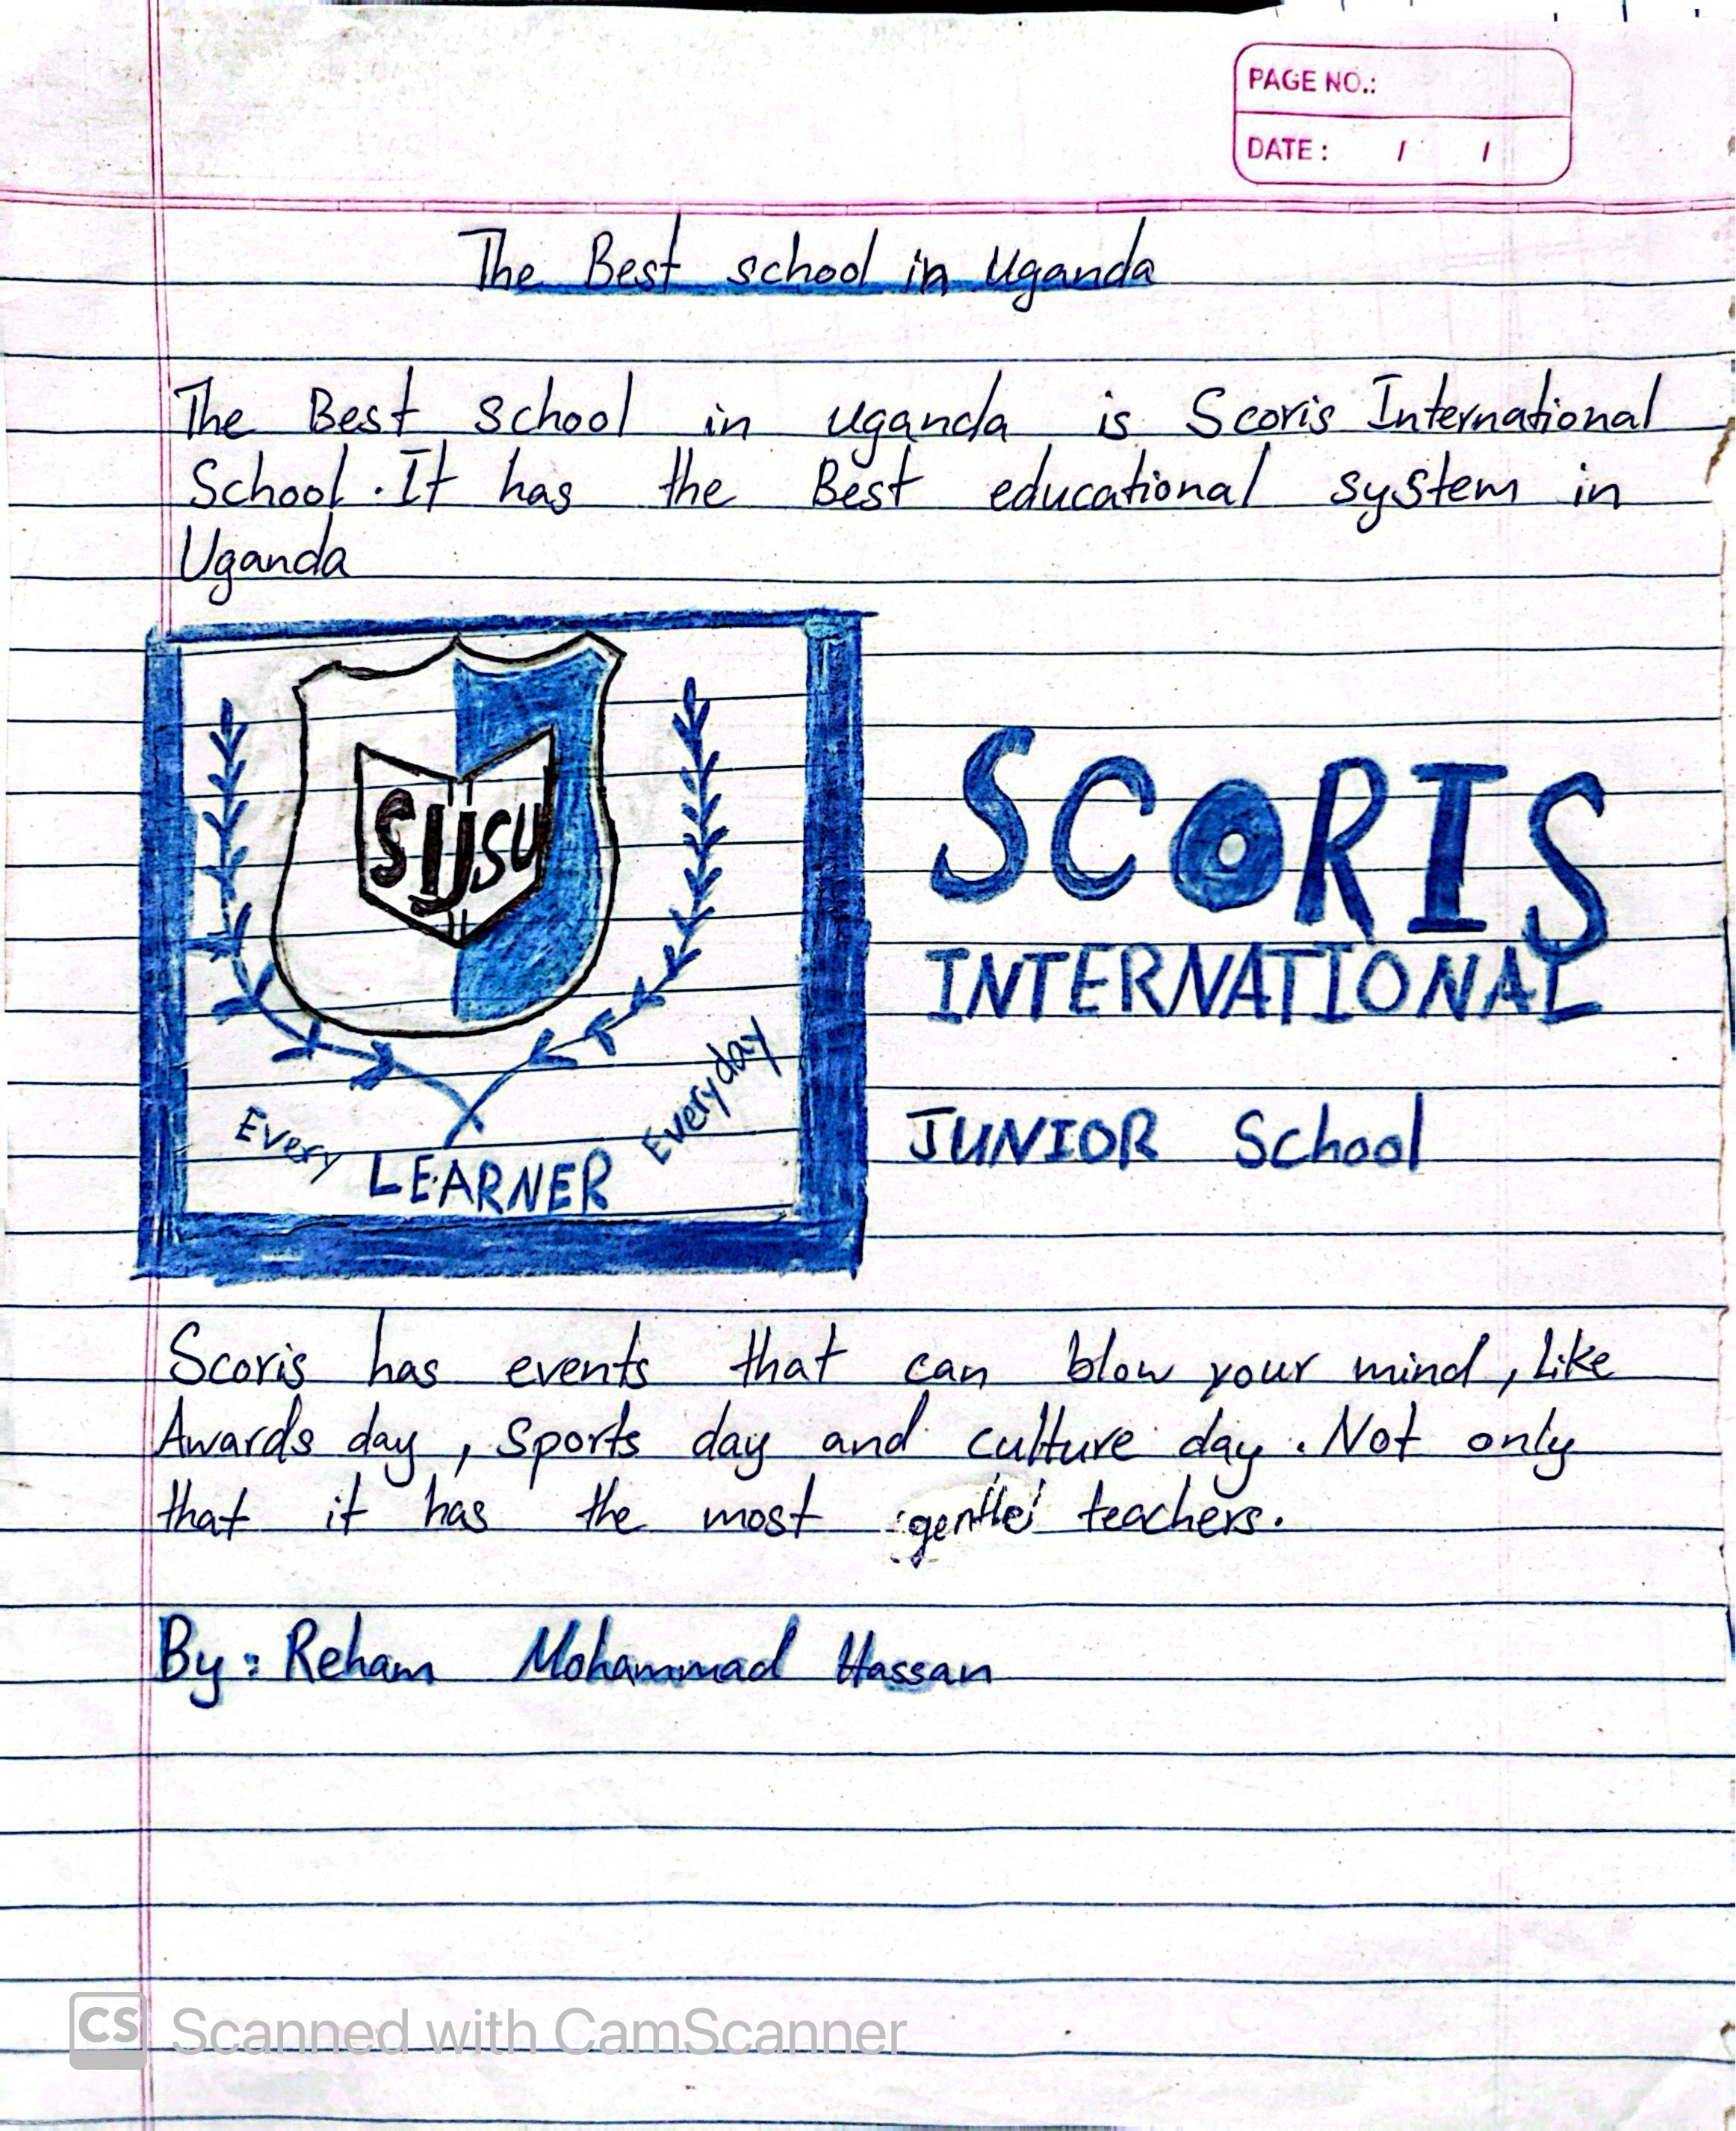 PAGE NO.:
DATE : / /
The Best school in Uganda
The Best school in Uganda is Scoris International
School. It has the Best educational system in
Uganda
SIJSU
Every LEARNER Everyday
SCORIS
INTERNATIONAL
JUNIOR School
Scoris has events that can blow your mind, Like
Awards day, sports day and culture day. Not only
that it has the most gentle teachers.
By: Reham Mohammad Hassan
CS Scanned with CamScanner